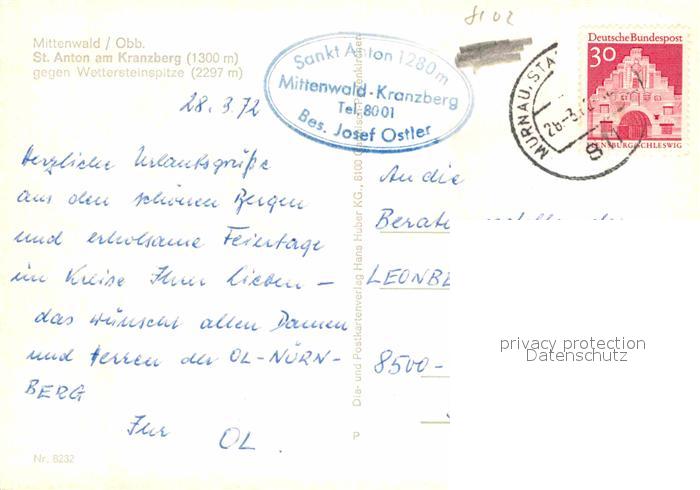 8102
Mittenwald / Obb.
St. Anton am Kranzberg (1300 m)
gegen Wettersteinspitze (2297 m)
Sankt Anton 1280m
Mittenwald-Kranzberg
Tel. 8001
Bes. Josef Ostler
Deutsche Bundespost
30
FLENSBURG/SCHLESWIG
MURNAU, STA
28.3.72
Herzliche Urlaubsgrüße
aus den schönen Bergen
und erholsame Feiertage
im Kreise Ihrer Lieben –
das wünscht allen Damen
und Herren der OL-NÜRN-
BERG
Ihr OL.
Dia- und Postkartenverlag Hans Huber KG., 8100 Garmisch-Partenkirchen
P
An die
Berat
LEONBE
8500-
privacy protection
Datenschutz
Nr. 8232